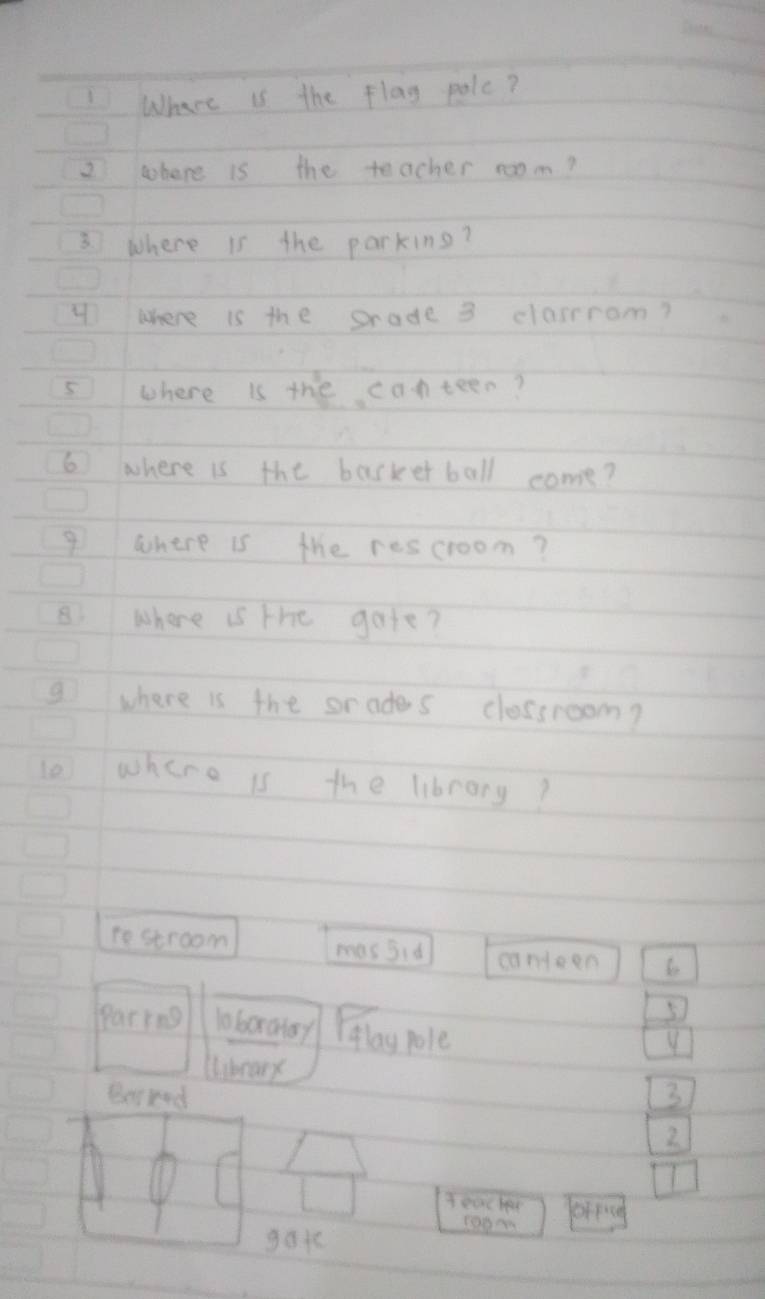 1 Where is the flag pole?
2 where is the teacher room?
3 where is the parking?
4 where is the grade 3 classrom?
5 where is the canteen?
6 where is the basket ball come?
7 where is the rescroom?
8. where is the gate?
9 where is the grades clossroom?
10 where is the library?
restroom masjid canteen 6
laboratory flag pole 5
library 4
3
2
teacher office 1
room
gate